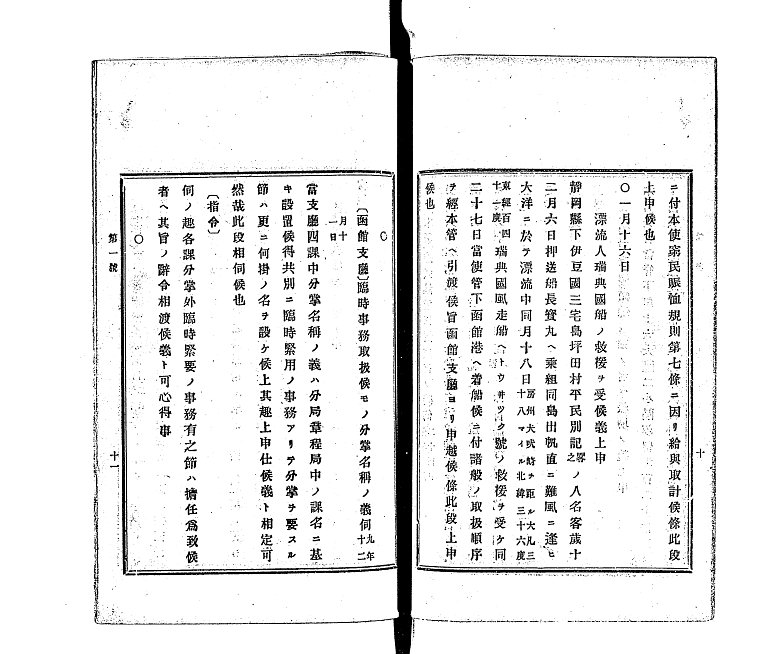 ニ付本使窮民賑恤規則第七條ニ因リ給與取計候條此段
上申候也
〇一月十六日
漂流人瑞典國船ノ救援ヲ受候義上申
靜岡縣下伊豆國三宅島坪田村平民別記略之ノ八名客歲十
二月六日押送船長寶丸ヘ乘組同島出帆直ニ難風ニ逢ヒ
大洋ニ於テ漂流中同月十八日房州大吠崎ヲ距ル大凡三十八マイル北緯三十六度
東經百四十一度瑞典國風走船ヘトウ井ツク號ノ救援ヲ受ケ同
二十七日當使管下函館港ヘ着船候ニ付諸般ノ取扱順序
ヲ經本管ヘ引渡候旨函館支廳ヨリ申越候條此段上申
候也
十
〇
〔函館支廳〕臨時事務取扱候モノ分掌名稱ノ義伺九年十二
月十一日
當支廳四課中分掌名稱ノ義ハ分局章程局中ノ課名ニ基
キ設置候得共別ニ臨時緊用ノ事務アリテ分掌ヲ要スル
節ハ更ニ何掛ノ名ヲ設ケ候上其趣上申仕候義ト相定可
然哉此段相伺候也
〔指令〕
伺ノ趣各課分掌外臨時緊要ノ事務有之節ハ擔任爲致候
者ヘ其旨ノ辭令相渡候義ト可心得事
〇
第一號
十一